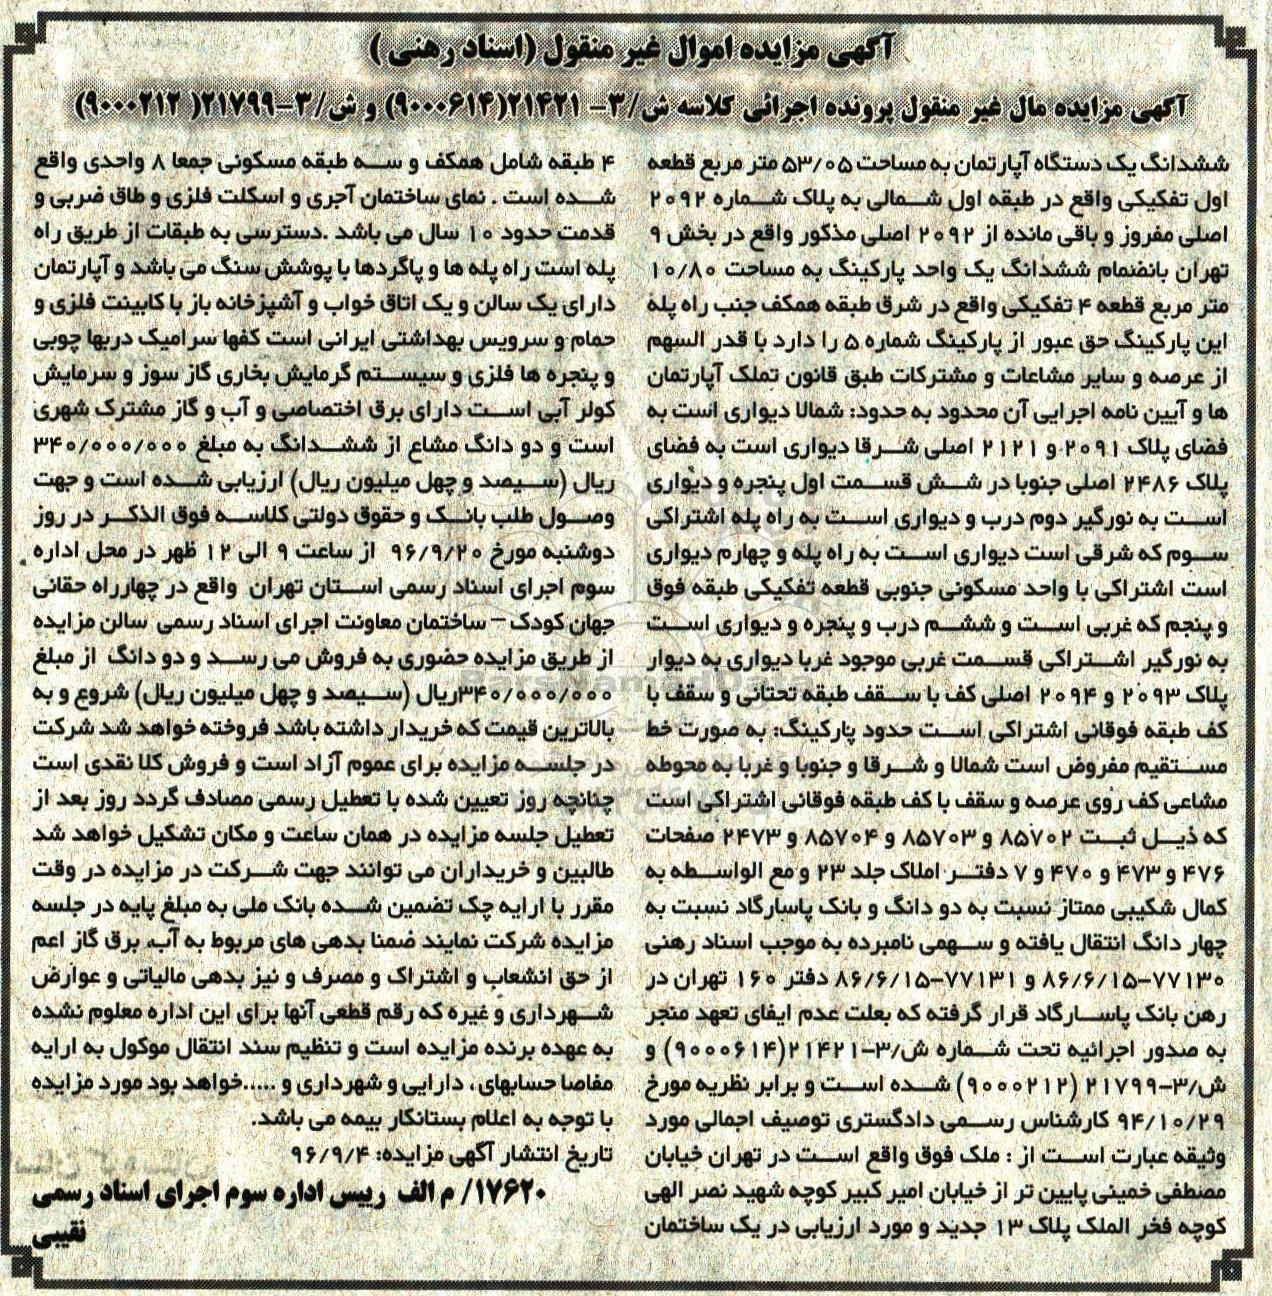 آگهی مزایده اموال غیر منقول (اسناد رهنی)
آگهی مزایده مال غیر منقول پرونده اجرائی کلاسه ش/۳- ۲۱۴۲۱(۹۰۰۰۶۱۴) و ش/۳-۲۱۷۹۹( ۹۰۰۰۲۱۲)
ششدانگ یک دستگاه آپارتمان به مساحت ۵۳/۰۵ متر مربع قطعه
اول تفکیکی واقع در طبقه اول شمالی به پلاک شماره ۲۰۹۲
اصلی مفروز و باقی مانده از ۲۰۹۲ اصلی مذکور واقع در بخش ۹
تهران بانضمام ششدانگ یک واحد پارکینگ به مساحت ۱۰/۸۰
متر مربع قطعه ۴ تفکیکی واقع در شرق طبقه همکف جنب راه پله
این پارکینگ حق عبور از پارکینگ شماره ۵ را دارد با قدر السهم
از عرصه و سایر مشاعات و مشترکات طبق قانون تملک آپارتمان
ها و آیین نامه اجرایی آن محدود به حدود: شمالا دیواری است به
فضای پلاک ۲۰۹۱ و ۲۱۲۱ اصلی شرقا دیواری است به فضای
پلاک ۲۴۸۶ اصلی جنوبا در شش قسمت اول پنجره و دیواری
است به نورگیر دوم درب و دیواری است به راه پله اشتراکی
سوم که شرقی است دیواری است به راه پله و چهارم دیواری
است اشتراکی با واحد مسکونی جنوبی قطعه تفکیکی طبقه فوق
و پنجم که غربی است و ششم درب و پنجره و دیواری است
به نورگیر اشتراکی قسمت غربی موجود غربا دیواری به دیوار
پلاک ۲۰۹۳ و ۲۰۹۴ اصلی کف با سقف طبقه تحتانی و سقف با
کف طبقه فوقانی اشتراکی است حدود پارکینگ: به صورت خط
مستقیم مفروض است شمالا و شرقا و جنوبا و غربا به محوطه
مشاعی کف روی عرصه و سقف با کف طبقه فوقانی اشتراکی است
که ذیل ثبت ۸۵۷۰۲ و ۸۵۷۰۳ و ۸۵۷۰۴ و ۲۴۷۳ صفحات
۴۷۶ و ۴۷۳ و ۴۷۰ و ۷ دفتر املاک جلد ۲۳ و مع الواسطه به
کمال شکیبی ممتاز نسبت به دو دانگ و بانک پاسارگاد نسبت به
چهار دانگ انتقال یافته و سهمی نامبرده به موجب اسناد رهنی
۷۷۱۳۰-۸۶/۶/۱۵ و ۷۷۱۳۱-۸۶/۶/۱۵ دفتر ۱۶۰ تهران در
رهن بانک پاسارگاد قرار گرفته که بعلت عدم ایفای تعهد منجر
به صدور اجرائیه تحت شماره ش/۳-۲۱۴۲۱(۹۰۰۰۶۱۴) و
ش/۳-۲۱۷۹۹ (۹۰۰۰۲۱۲) شده است و برابر نظریه مورخ
۹۴/۱۰/۲۹ کارشناس رسمی دادگستری توصیف اجمالی مورد
وثیقه عبارت است از : ملک فوق واقع است در تهران خیابان
مصطفی خمینی پایین تر از خیابان امیر کبیر کوچه شهید نصر الهی
کوچه فخر الملک پلاک ۱۳ جدید و مورد ارزیابی در یک ساختمان
۴ طبقه شامل همکف و سه طبقه مسکونی جمعا ۸ واحدی واقع
شده است . نمای ساختمان آجری و اسکلت فلزی و طاق ضربی و
قدمت حدود ۱۰ سال می باشد .دسترسی به طبقات از طریق راه
پله است راه پله ها و پاگردها با پوشش سنگ می باشد و آپارتمان
دارای یک سالن و یک اتاق خواب و آشپزخانه باز با کابینت فلزی و
حمام و سرویس بهداشتی ایرانی است کفها سرامیک دربها چوبی
و پنجره ها فلزی و سیستم گرمایش بخاری گاز سوز و سرمایش
کولر آبی است دارای برق اختصاصی و آب و گاز مشترک شهری
است و دو دانگ مشاع از ششدانگ به مبلغ ۳۴۰/۰۰۰/۰۰۰
ریال (سیصد و چهل میلیون ریال) ارزیابی شده است و جهت
وصول طلب بانک و حقوق دولتی کلاسه فوق الذکر در روز
دوشنبه مورخ ۹۶/۹/۲۰ از ساعت ۹ الی ۱۲ ظهر در محل اداره
سوم اجرای اسناد رسمی استان تهران واقع در چهارراه حقانی
جهان کودک – ساختمان معاونت اجرای اسناد رسمی سالن مزایده
از طریق مزایده حضوری به فروش می رسد و دو دانگ از مبلغ
۳۴۰/۰۰۰/۰۰۰ریال (سیصد و چهل میلیون ریال) شروع و به
بالاترین قیمت که خریدار داشته باشد فروخته خواهد شد شرکت
در جلسه مزایده برای عموم آزاد است و فروش کلا نقدی است
چنانچه روز تعیین شده با تعطیل رسمی مصادف گردد روز بعد از
تعطیل جلسه مزایده در همان ساعت و مکان تشکیل خواهد شد
طالبین و خریداران می توانند جهت شرکت در مزایده در وقت
مقرر با ارایه چک تضمین شده بانک ملی به مبلغ پایه در جلسه
مزایده شرکت نمایند ضمنا بدهی های مربوط به آب، برق گاز اعم
از حق انشعاب و اشتراک و مصرف و نیز بدهی مالیاتی و عوارض
شهرداری و غیره که رقم قطعی آنها برای این اداره معلوم نشده
به عهده برنده مزایده است و تنظیم سند انتقال موکول به ارایه
مفاصا حسابهای، دارایی و شهرداری و .....خواهد بود مورد مزایده
با توجه به اعلام بستانکار بیمه می باشد.
تاریخ انتشار آگهی مزایده: ۹۶/۹/۴
۱۷۶۲۰/ م الف رییس اداره سوم اجرای اسناد رسمی
نقیبی
ParsNamadData